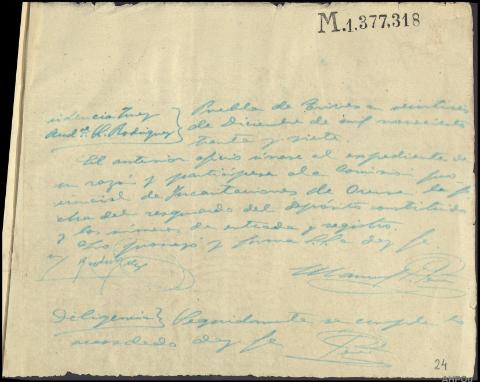 M.1.377,318
Providencia Juez } Puebla de Trives a veintitres
Aud.ᵃ Sr. Rodriguez } de Diciembre de mil novecientos
treinta y siete.
El anterior oficio únase al expediente de
su razón y participese a la Comisión pro
vincial de Incautaciones de Orense la fe
cha del resguardo del depósito constituido
y los números de entrada y registro.
Lo mandó y firma S.Sª doy fe.
Rodriguez
Manuel
Diligencia } Seguidamente se cumple lo
acordado doy fe
24